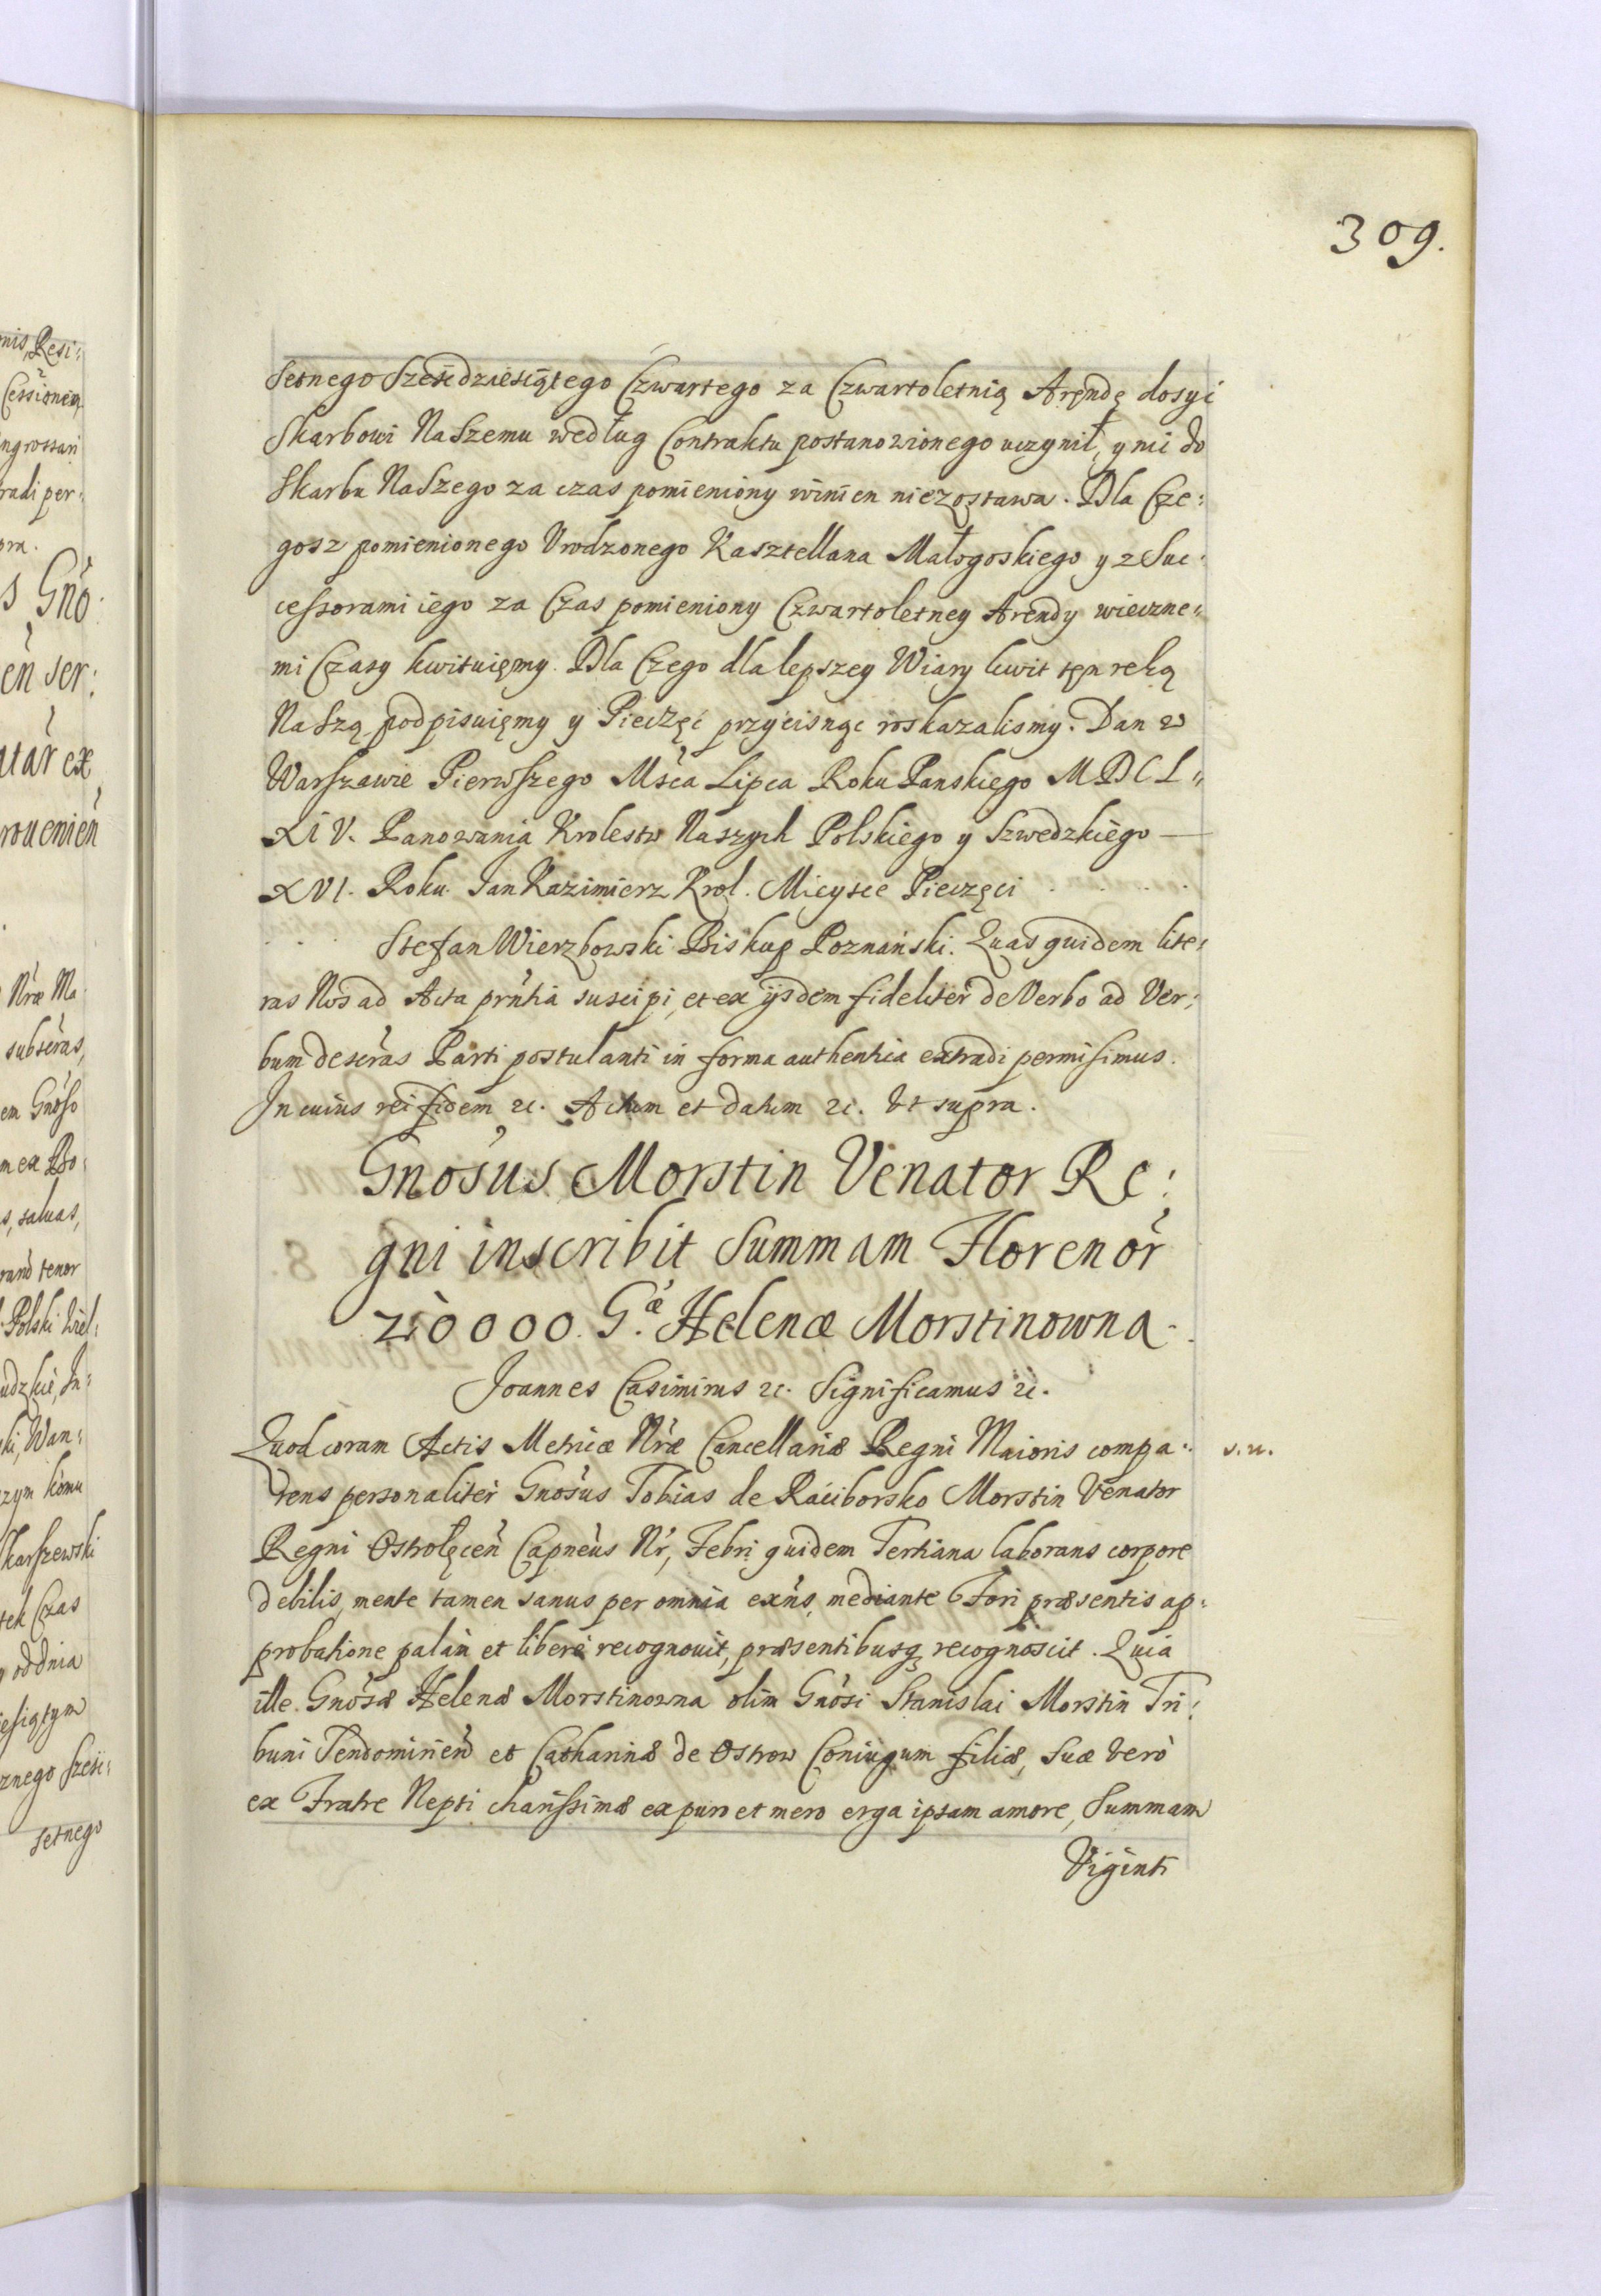 309.
setnego Szescdziesiątego Czwartego za Czwartoletnią Arendę dosyc
Skarbowi Naszemu według Contraktu postanowionego uczynił, y nic do
Skarbu Naszego za czas pomieniony winien niezostawa. Dla Cze:
gosz pomienionego Urodzonego Kasztellana Małogoskiego y z Suc:
cessorami iego za Czas pomieniony Czwartoletney Arendy wieczne:
mi Czasy kwituięmy. Dla Czego dla lepszey Wiary kwit tęn ręką
Naszą podpisuięmy y Pieczęć przycisnąc roskazalismy. Dan w
Warszawie Pierwszego Msca Lipca Roku Panskiego MDCL"
XIV. Panowania Krolestw Naszych Polskiego y Szwedzkiego —
XVI. Roku. Jan Kazimierz Krol. Mieysce Pieczęci . . . . .
. . . Stefan Wierzbowski Biskup Poznański. Quas quidem lite:
ras Nos ad Acta prntia suscipi, et ex ijsdem fideliter de Verbo ad Ver:
bum descras Parti postulanti in forma authentica extradi permisimus.
In cuius rei fidem &c. Actum et datum &c. Ut supra.
Gnosus Morstin Venator Re:
gni inscribit Summam Florenor
20000. G.æ Helenæ Morstinowna.
Joannes Casimirus &c. Significamus &c.
Quod coram Actis Metricæ Nræ Cancellariæ Regni Maioris compa: s.n.
rens personaliter Gnosus Tobias de Raciborsko Morstin Venator
Regni Ostrołęcen Capneus Nr, Febri quidem Tertiana laborans corpore
debilis, mente tamen sanus per omnia exns, mediante Fori præsentis ap:
probatione palàm et liberè recognouit, præsentibusq recognoscit. Quia
ille Gnosæ Helenæ Morstinowna olim Gnosi Stanislai Morstin Tri:
buni Sendomirien et Catharinæ de Ostrow Coniugum filiæ, Suæ verò
ex Fratre Nepti charissimæ ex puro et mero erga ipsam amore, Summam
Viginti